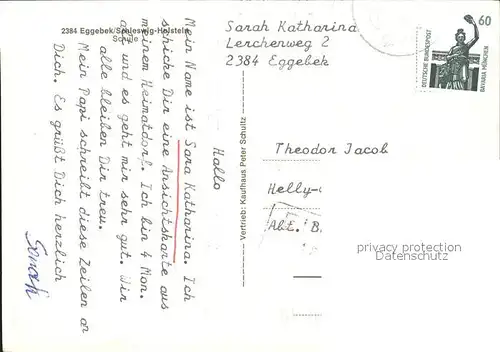 2384 Eggebek/Schleswig-Holstein
Schule
Hallo
Mein Name ist Sara Katharina. Ich
schicke Dir eine Ansichtskarte aus
meinem Heimatdorf. Ich bin 4 Mon.
alt und es geht mir sehr gut. Wir
alle bleiben Dir treu.
Mein Papi schreibt diese Zeilen an
Dich. Es grüßt Dich herzlich
Sarah
Vertrieb: Kaufhaus Peter Schultz
Sarah Katharina
Lerchenweg 2
2384 Eggebek
60
DEUTSCHE BUNDESPOST
BAVARIA MÜNCHEN
Theodor Jacob
Helly-
Abt. B.
privacy protection
Datenschutz